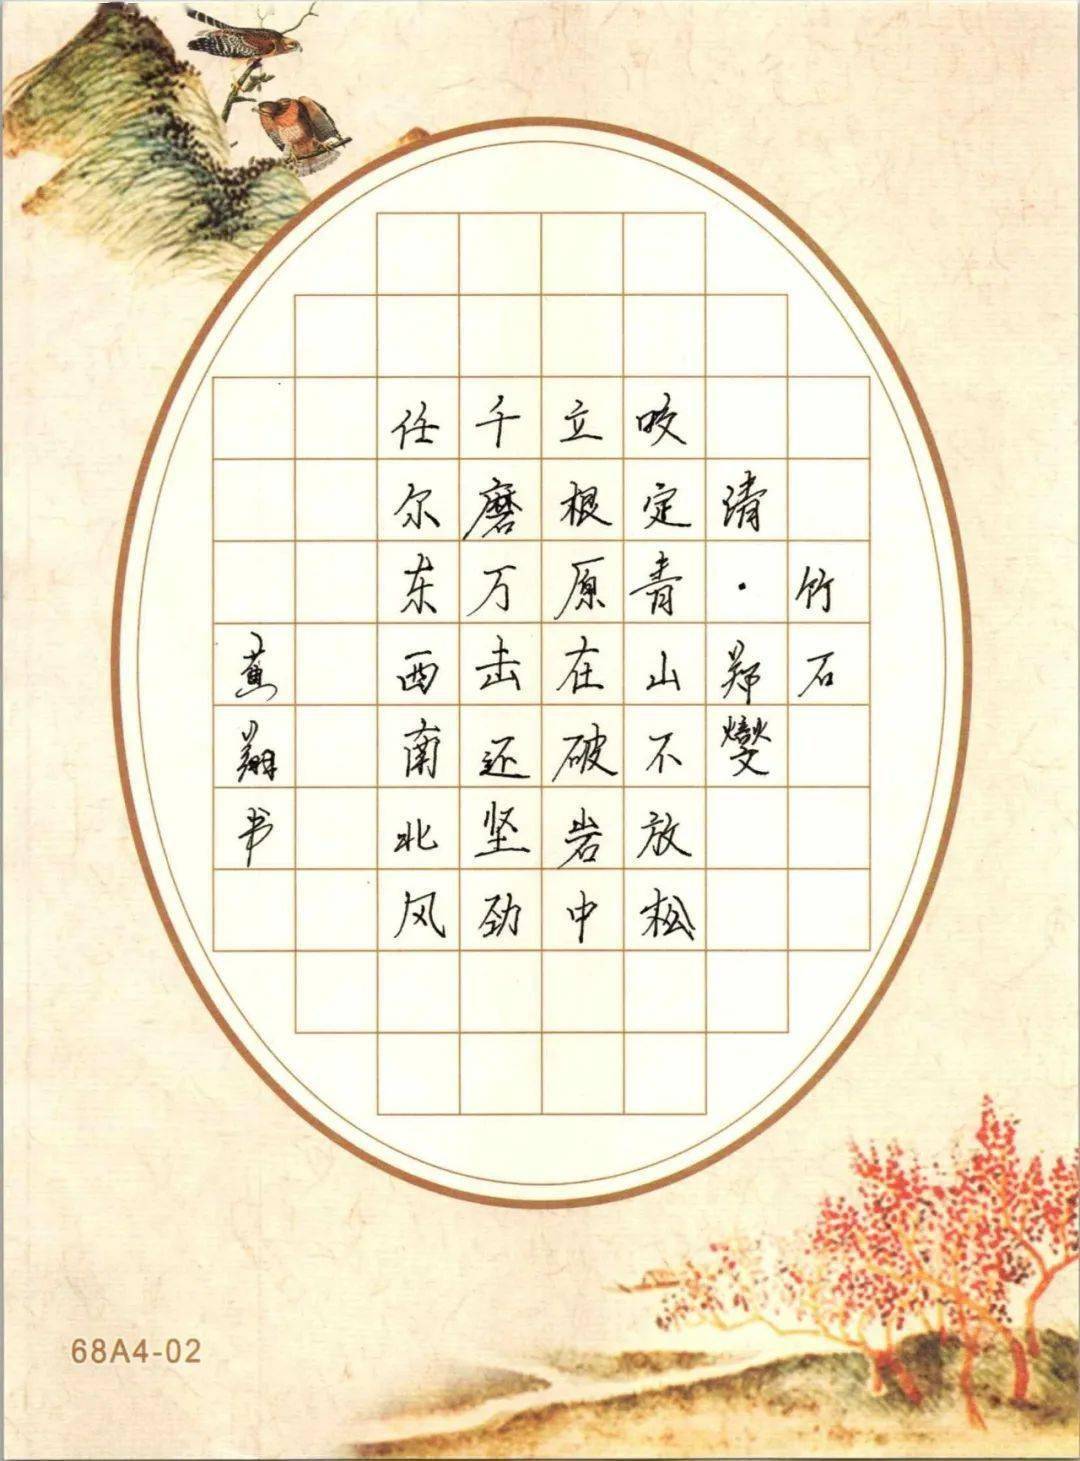 竹石
清·郑燮
咬定青山不放松
立根原在破岩中
千磨万击还坚劲
任尔东西南北风
翔书
68A4-02